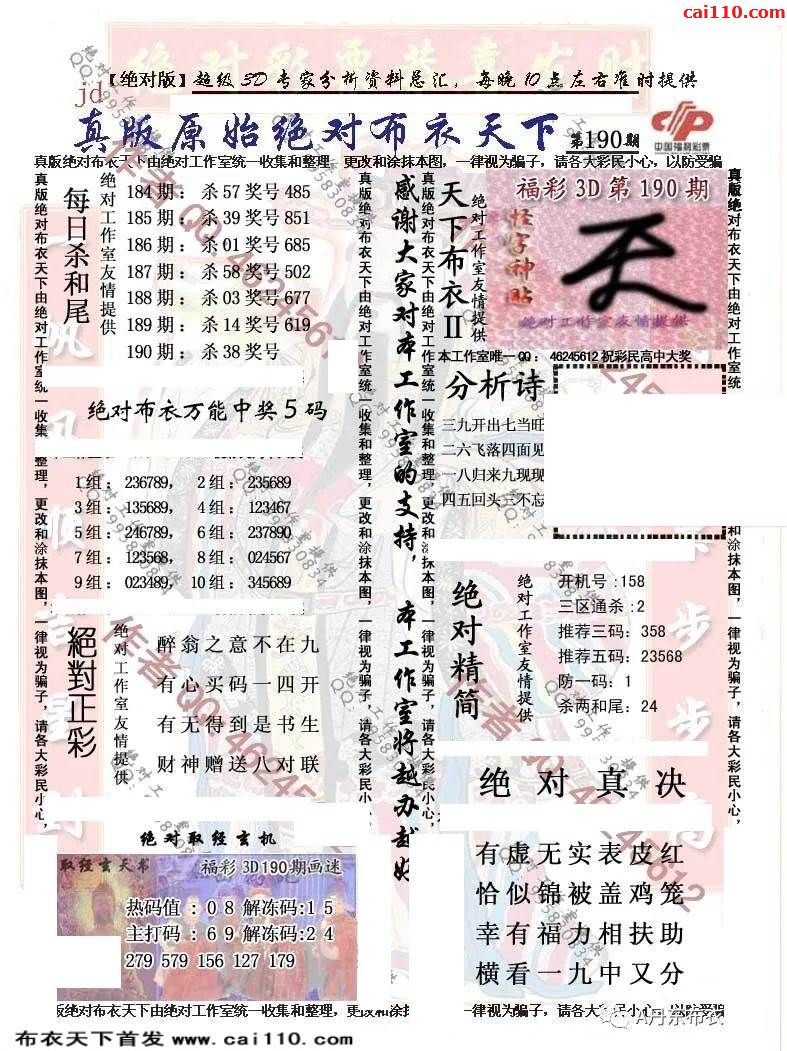 cai110.com
【绝对版】超级3D专家分析资料总汇，每晚10点左右准时提供
jd
真版原始绝对布衣天下
第190期
中国福利彩票
真版绝对布衣天下由绝对工作室统一收集和整理，更改和涂抹本图，一律视为骗子，请各大彩民小心，以防受骗
每日杀和尾
绝对工作室友情提供
184期：杀57奖号485
185期：杀39奖号851
186期：杀01奖号685
187期：杀58奖号502
188期：杀03奖号677
189期：杀14奖号619
190期：杀38奖号
绝对布衣万能中奖5码
1组：236789， 2组：235689
3组：135689， 4组：123467
5组：246789， 6组：237890
7组：123568， 8组：024567
9组：023489， 10组：345689
絕對正彩
绝对工作室友情提供
醉翁之意不在九
有心买码一四开
有无得到是书生
财神赠送八对联
绝对取经玄机
取经玄天书
福彩3D190期画迷
热码值：08解冻码:15
主打码：69解冻码:24
279 579 156 127 179
感谢大家对本工作室的支持，本工作室将越办越好
天下布衣II
绝对工作室友情提供
福彩3D第190期
怪字神贴
绝对工作室友情提供
本工作室唯一QQ：46245612祝彩民高中大奖
分析诗
三九开出七当旺
二六飞落四面见
一八归来九现现
四五回头三不忘
绝对精简
绝对工作室友情提供
开机号:158
三区通杀:2
推荐三码：358
推荐五码：23568
防一码：1
杀两和尾：24
绝对真决
有虚无实表皮红
恰似锦被盖鸡笼
幸有福力相扶助
横看一九中又分
真版绝对布衣天下由绝对工作室统一收集和整理，更改和涂抹本图，一律视为骗子，请各大彩民小心，
版绝对布衣天下由绝对工作室统一收集和整理，更改和涂抹
一律视为骗子，请各大彩民小心，以防受骗
A丹东布衣
布衣天下首发 www.cai110.com